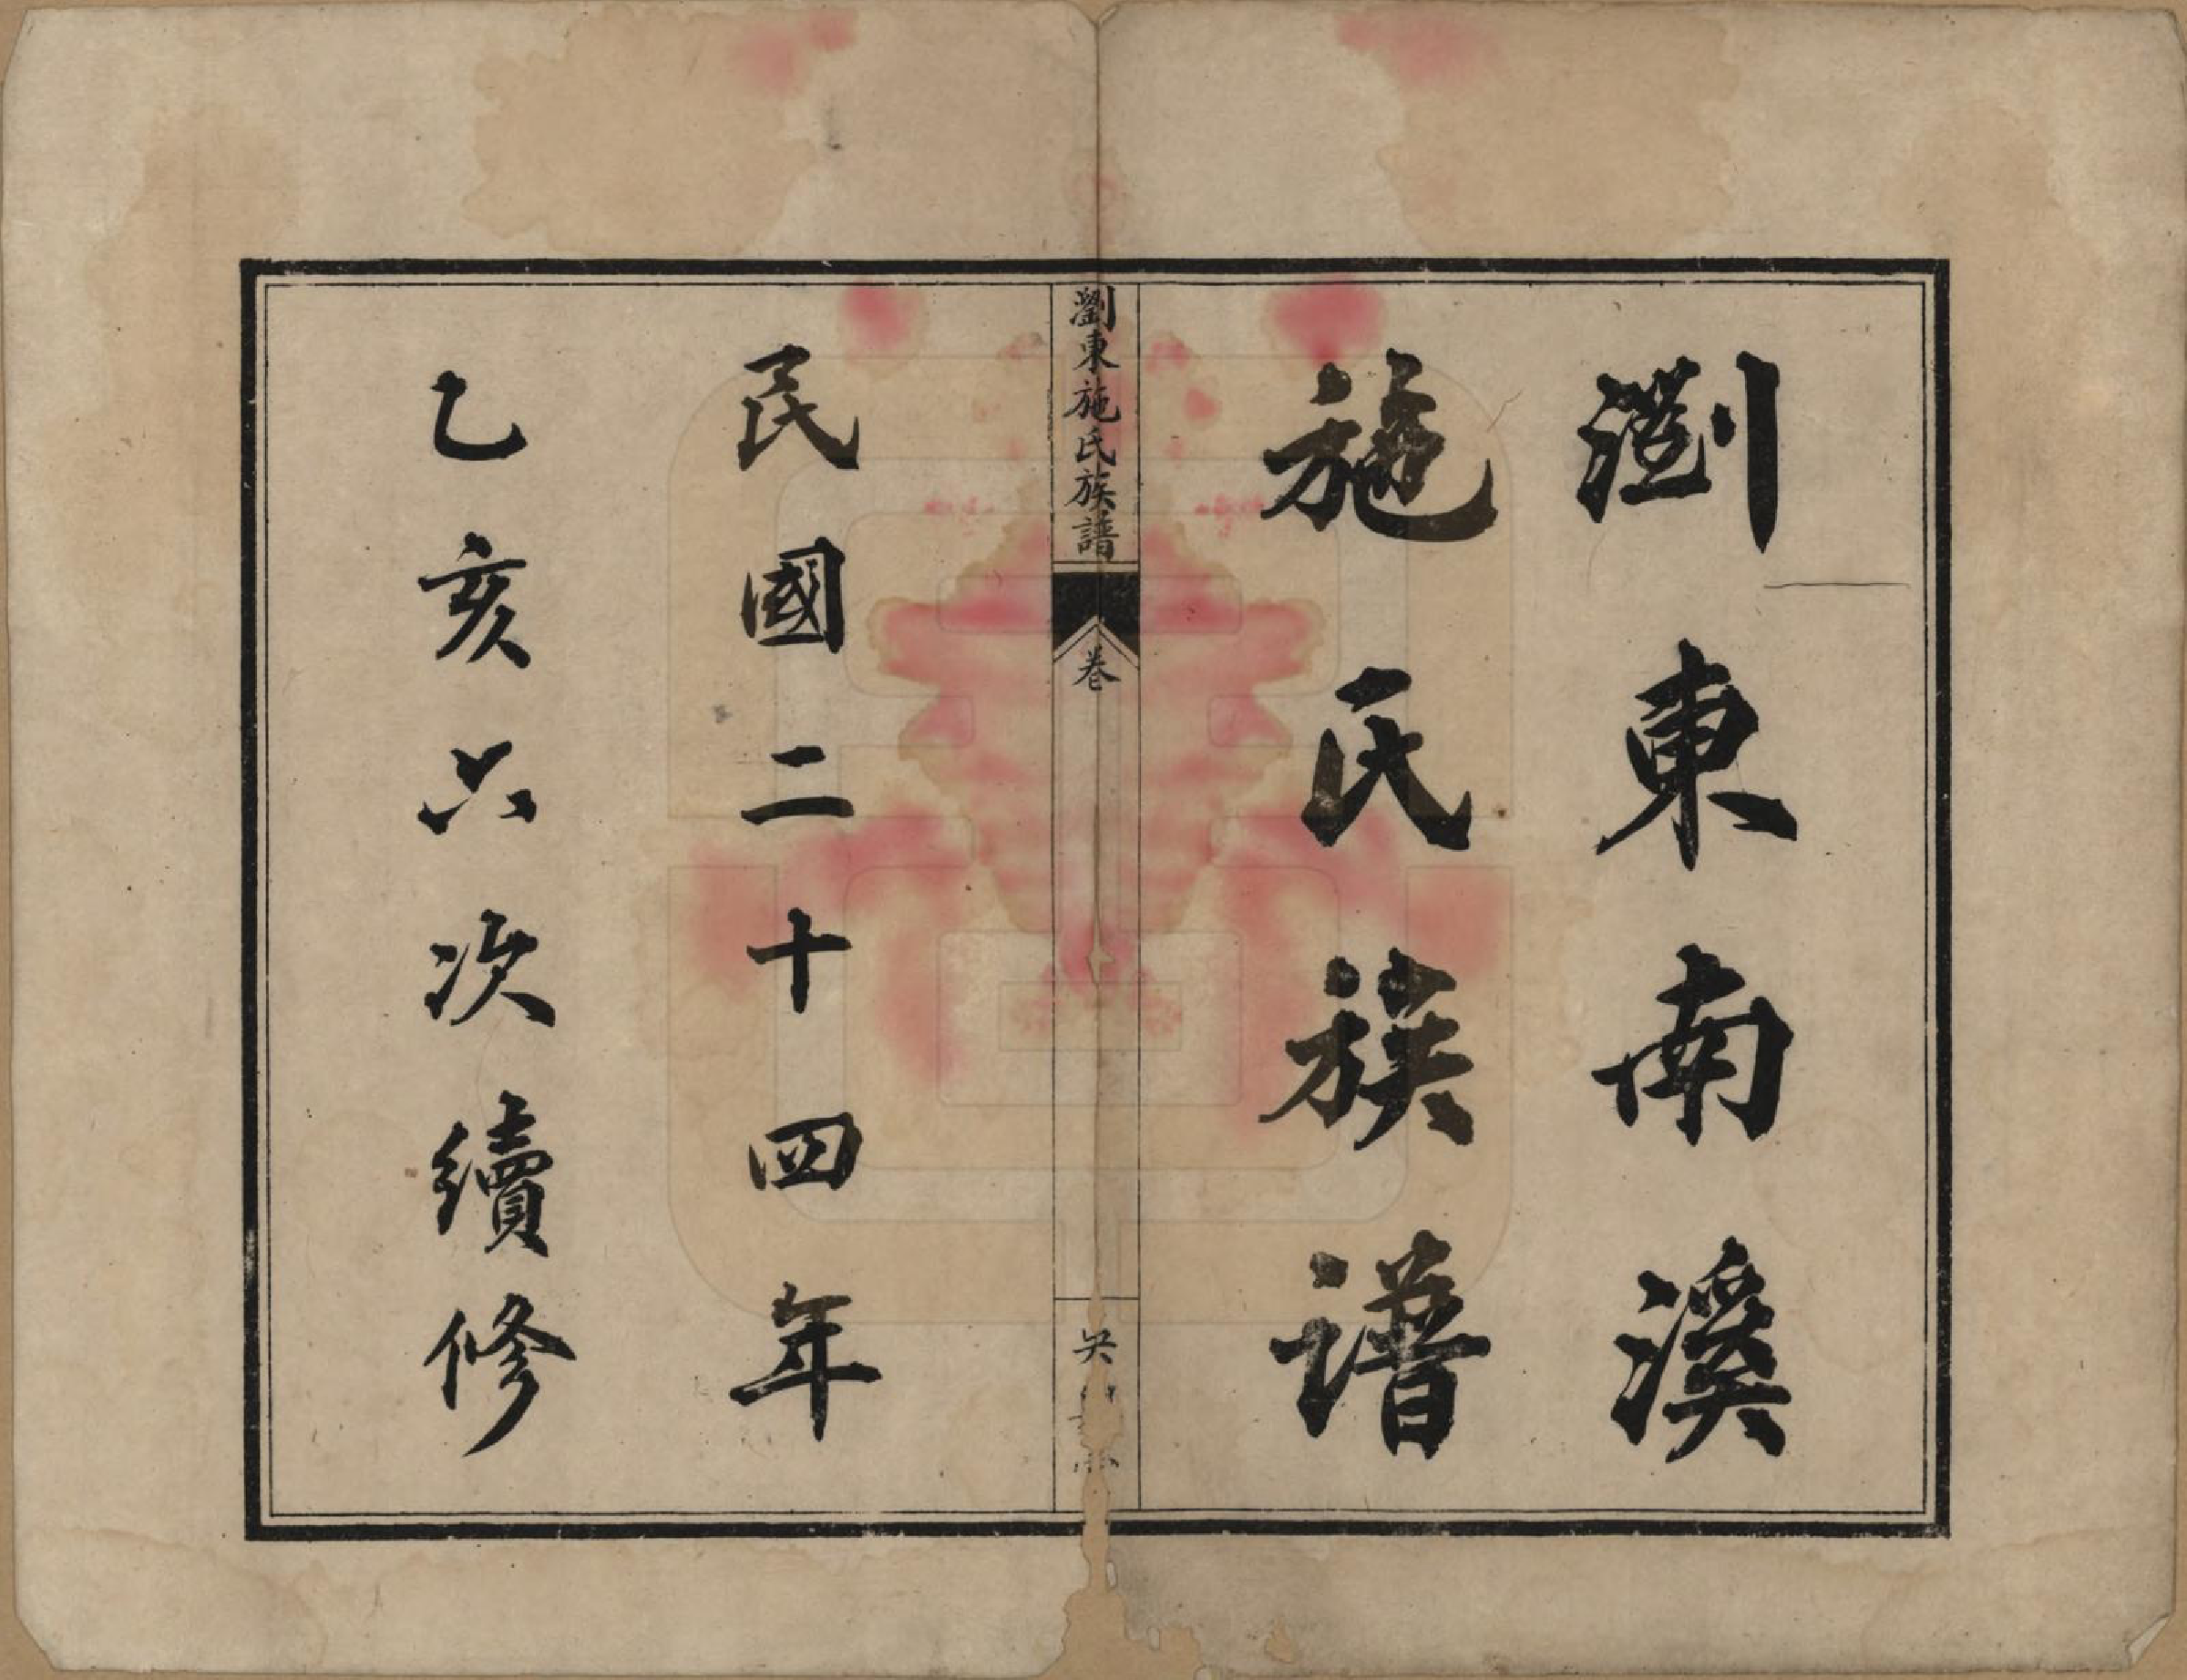 瀏東南溪
施氏族譜
瀏東施氏族譜
卷
吳
民國二十四年
乙亥六次續修